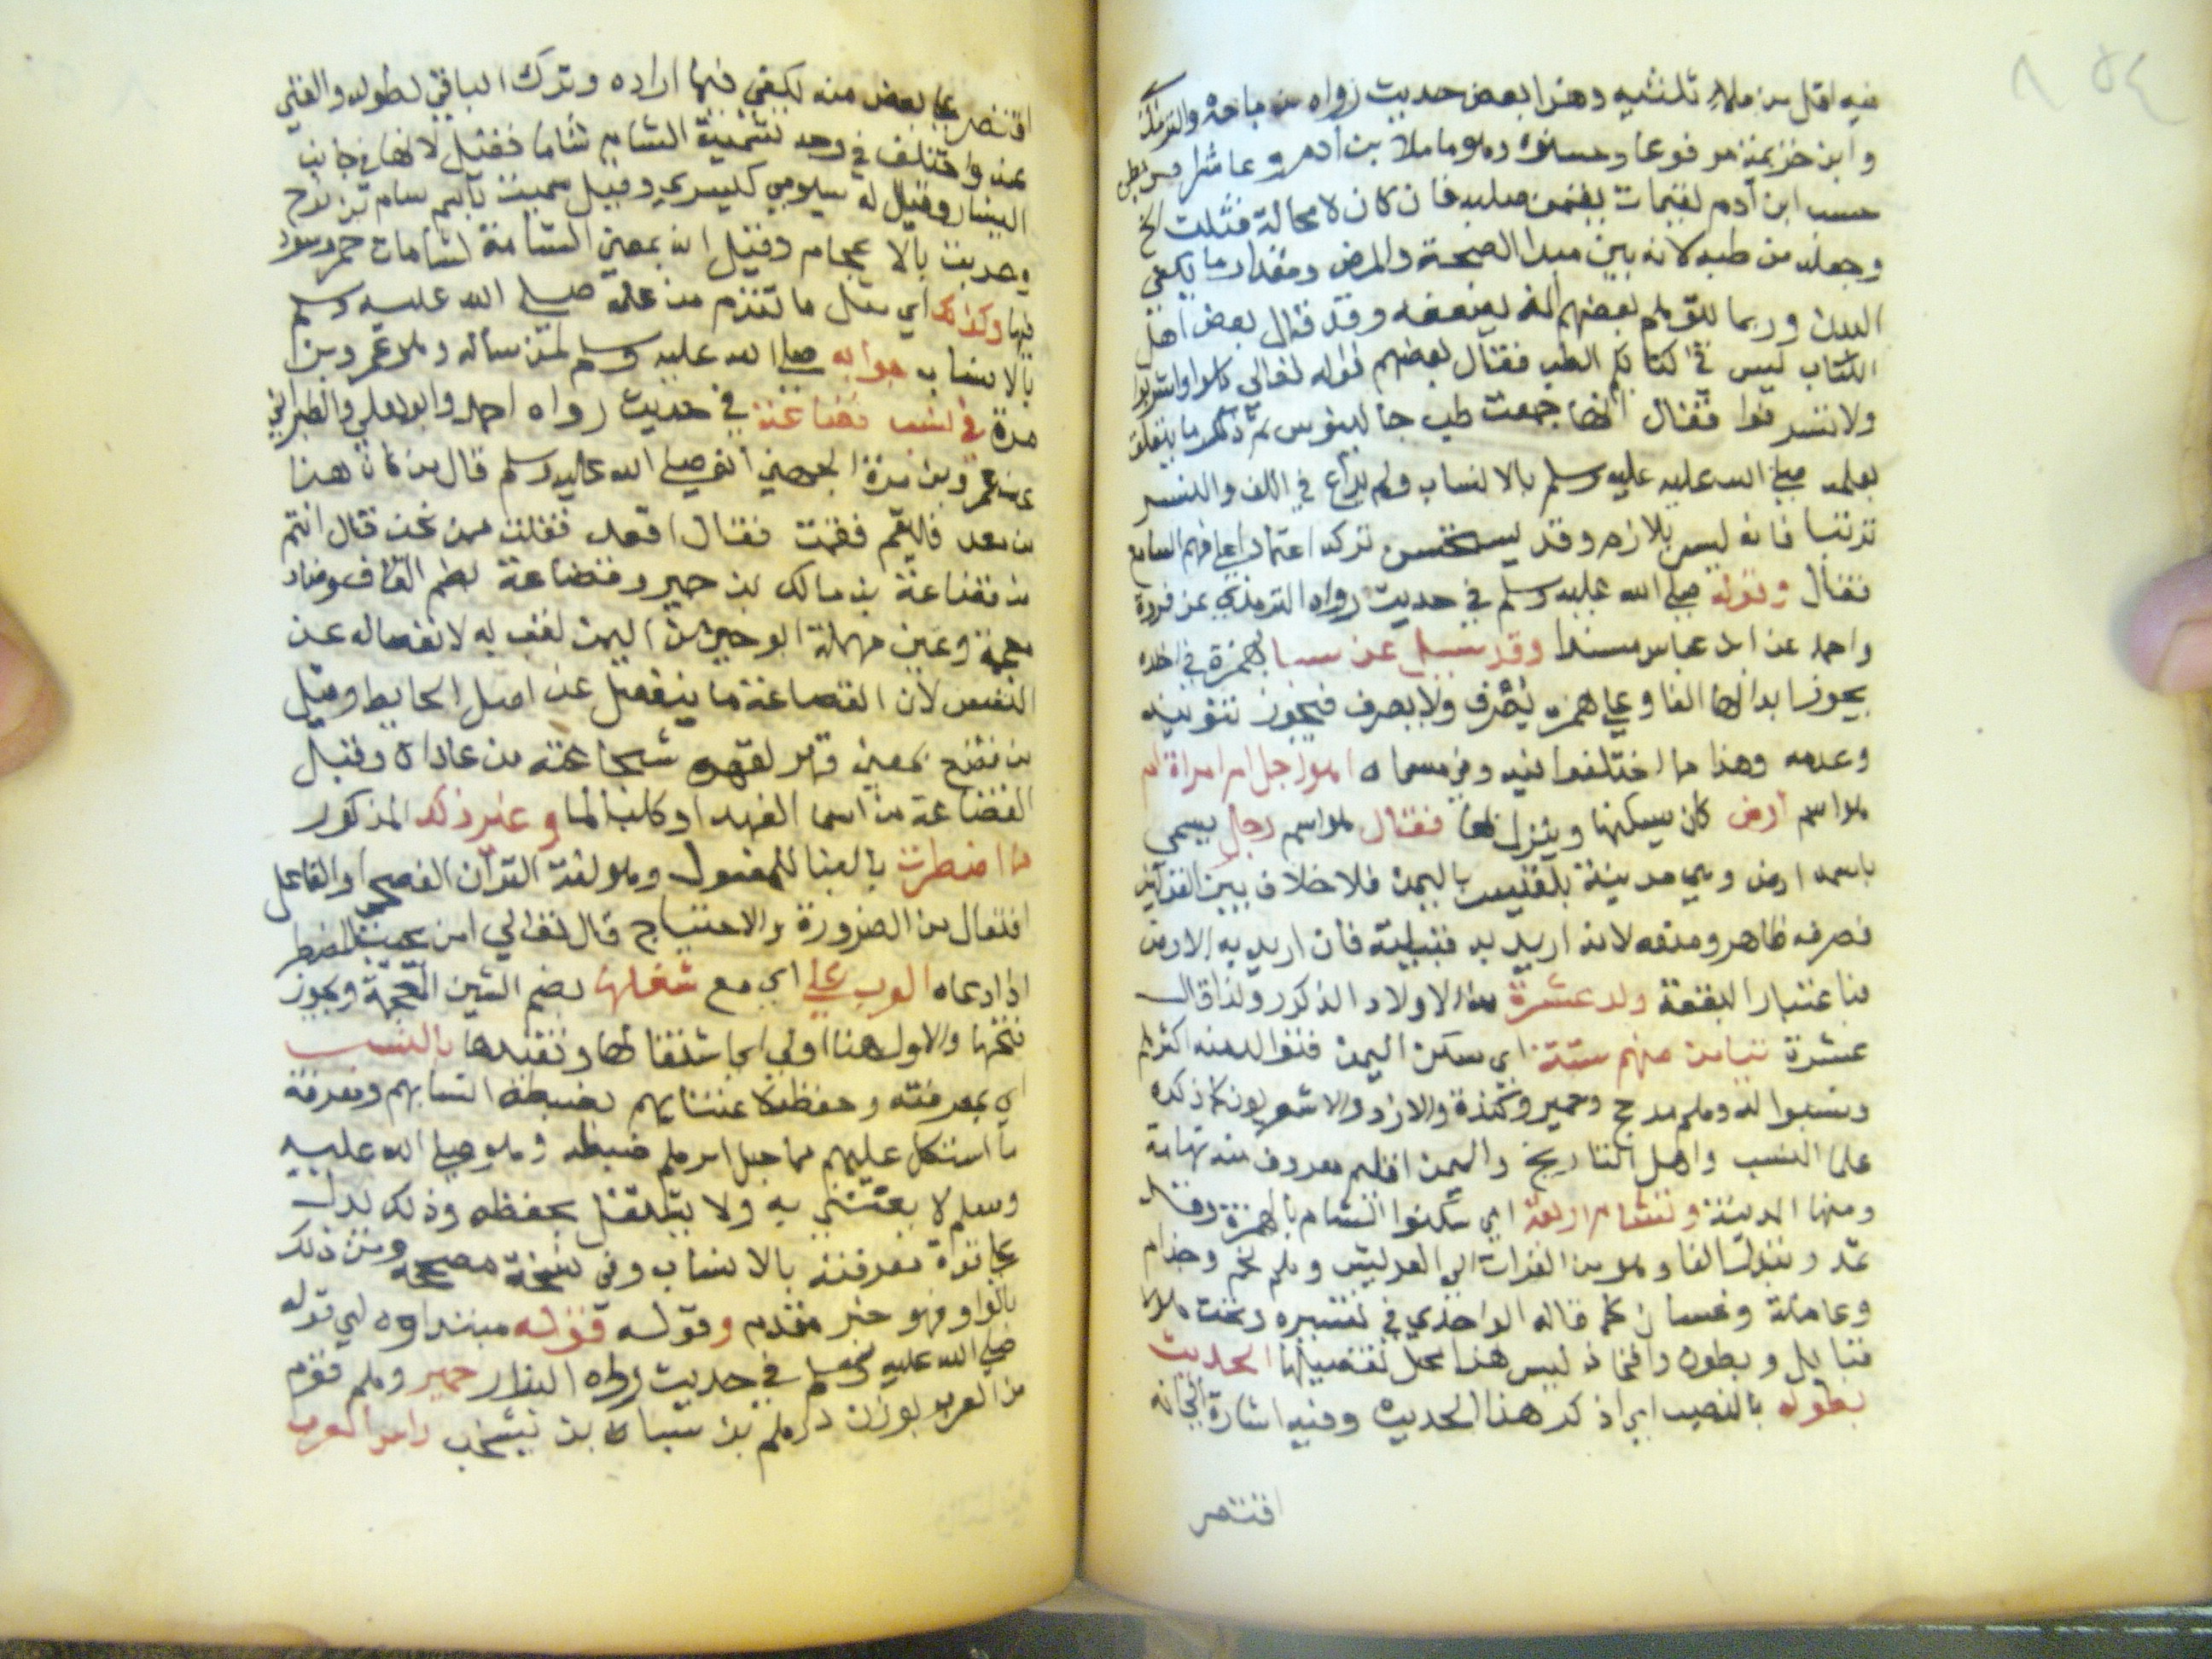 فيه اقل من ملء ثلثيه وهذا بعض حديث رواه بن ماجة والترمذي
وابن خزيمة مرفوعا وحسنوه وهو ما ملا بن ادم وعا شرا من بطن
حسب ابن ادم لقيمات يقمن صلبه فان كان لا محالة فثلث الخ
وجعله من طبه لانه بين مبدا الصحة والمرض ومقدار ما يكفي
البدن وربما يتوهم بعضهم انه يضعفه وقد قال بعض اهل
الكتاب ليس في كتابكم الطب فقال بعضهم قوله تعالى كلوا واشربوا
ولا تسرفوا فقال انها جمعت طب جالينوس ثم ذكر ما يتعلق
بعلمه صلى الله عليه عليه وسلم بالانساب ولم يراع في اللف والنشر
ترتيبا فانه ليس بلازم وقد يستحسن تركه اعتمادا على فهم السامع
فقال وقوله صلى الله عليه وسلم في حديث رواه الترمذي عن فروة
واحمد عن ابن عباس مسندا وقد سيل عن سبا بهمزة في اخره
يجوز ابدالها الفا وعلى همزه يصرف ولا يصرف فيجوز تنوينه
وعدمه وهذا ما اختلفوا فيه وفي مسماه اهو رجل ام امراة ام
هو اسم ارض كان يسكنها وينزل لها فقال هو اسم رجل يسمى
باسمه ارض وهي مدينة بلقيس باليمن فلا خلاف بين القراتين
فصرفه ظاهر ومنعه لانه اريد به قبيلة فان اريد به الارض
فباعتبار البقعة ولد عشرة من الاولاد الذكور ولذا قال
عشرة تيامن منهم ستة اي سكن اليمن فتوالد منه اكثرهم
ونسبوا له وهم مدحج وحمير وكندة والازد والاشعريون كما ذكره
علما النسب واهل التاريخ واليمن اقليم معروف منه تهامة
ومنها المدينة وتشام اربعة اي سكنوا الشام بالهمزة وقد
تمد وتبدل الفا وهو من الفرات الى العريش وهم لخم وجذام
وعاملة وغسان كما قاله الواحدي في تفسيره وتحت هولا
قبايل وبطون وافخاذ ليس هذا محل تفصيلها الحديث
بطوله بالنصب اي اذكر هذا الحديث وفيه اشارة الى انه
اقتصر
اقتصر على بعض منه يكفي فيما اراده وترك الباقي لطوله والغنى
عنه واختلف في وجه تسمية الشام شاما فقيل لانها في جانب
اليسار وقيل له سيومي كليسري وقيل سميت باسم سام بن نوح
وعربت بالاعجام وقيل انه بمعنى الشامة لشامات حمر وسود
فيها وكذلك اي مثل ما تقدم من علمه صلى الله عليه وسلم
بالانساب جوابه صلى الله عليه وسلم لمن ساله وهو عمرو بن
مرة في نسب قضاعة في حديث رواه احمد وابو يعلى والطبراني
عن عمرو بن مرة الجهني انه صلى الله عليه وسلم قال من كان هنا
من معد فاليقم فقمت فقال اقعد فقلت ممن نحن قال انتم
من قضاعة بن مالك بن حمير وقضاعة بضم القاف وضاد
معجمة وعين مهملة ابو حي من اليمن لقب به لانفصاله عن
النفس لان القضاعة ما ينفصل عن اصل الحايط وقيل
من قضع بمعنى قهر لقهره شجاعته من عاداه وقيل
القضاعة من اسما الفهد او كلب الما وغير ذلك المذكور
مما اضطرت بالبنا للمفعول وهو لغة القران الفصحى او الفاعل
افتعال من الضرورة والاحتياج قال تعالى امن يجيب المضطر
اذا دعاه العرب على اي مع شغلها بضم الشين المعجمة ويجوز
فتحها والاول هنا اولى اي اشتغالها وتقيدها بالنسب
اي بمعرفته وحفظه لاعتنايهم بضبطه انسابهم ومعرفة
ما اشكل عليهم مما جبل ام هم ضبطه وهو صلى الله عليه
وسلم لا يعتني به ولا يشتغل بحفظه وذلك يدل
على قوة معرفته بالانساب وفي نسخة مصححة ومن ذلك
بالواو فهو خبر مقدم وقوله قوله مبتداوه اي قوله
صلى الله عليه وسلم في حديث رواه البزار حمير وهم قوم
من العرب بوزن درهم بن سبا بن يشجب راس العرب